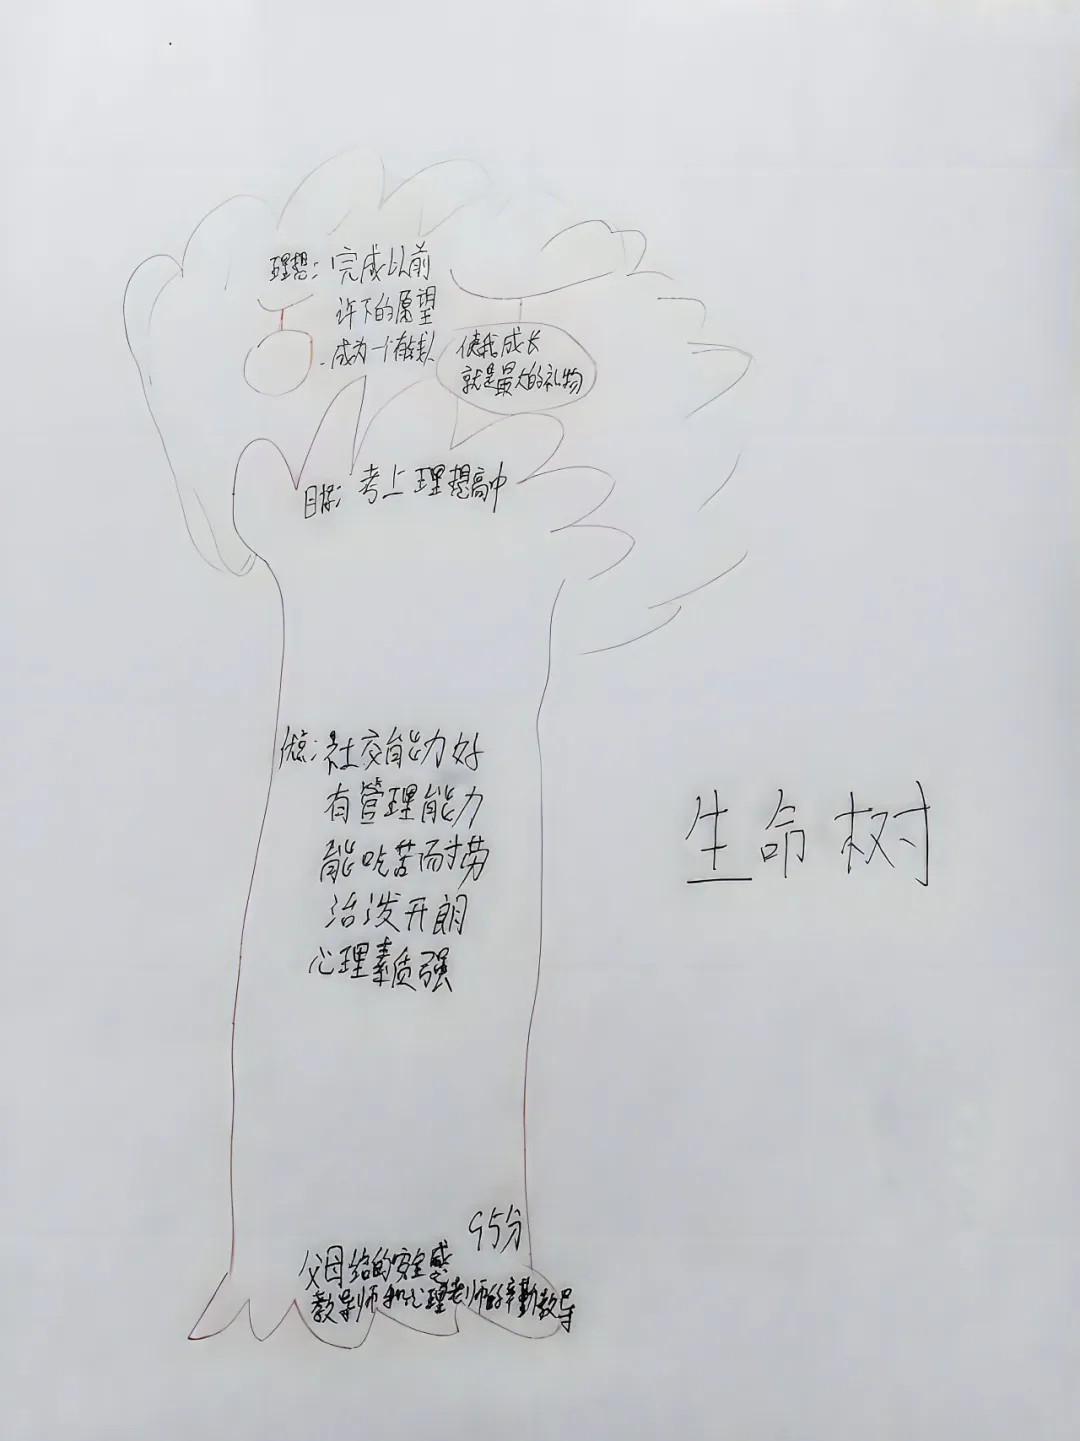 理想：完成以前
许下的愿望
成为一个有钱人
使我成长
就是最大的礼物
目标：考上理想高中
优点：社交能力好
有管理能力
能吃苦而耐劳
活泼开朗
心理素质强
生命树
95分
父母给的安全感
教导师和心理老师的辛勤教导